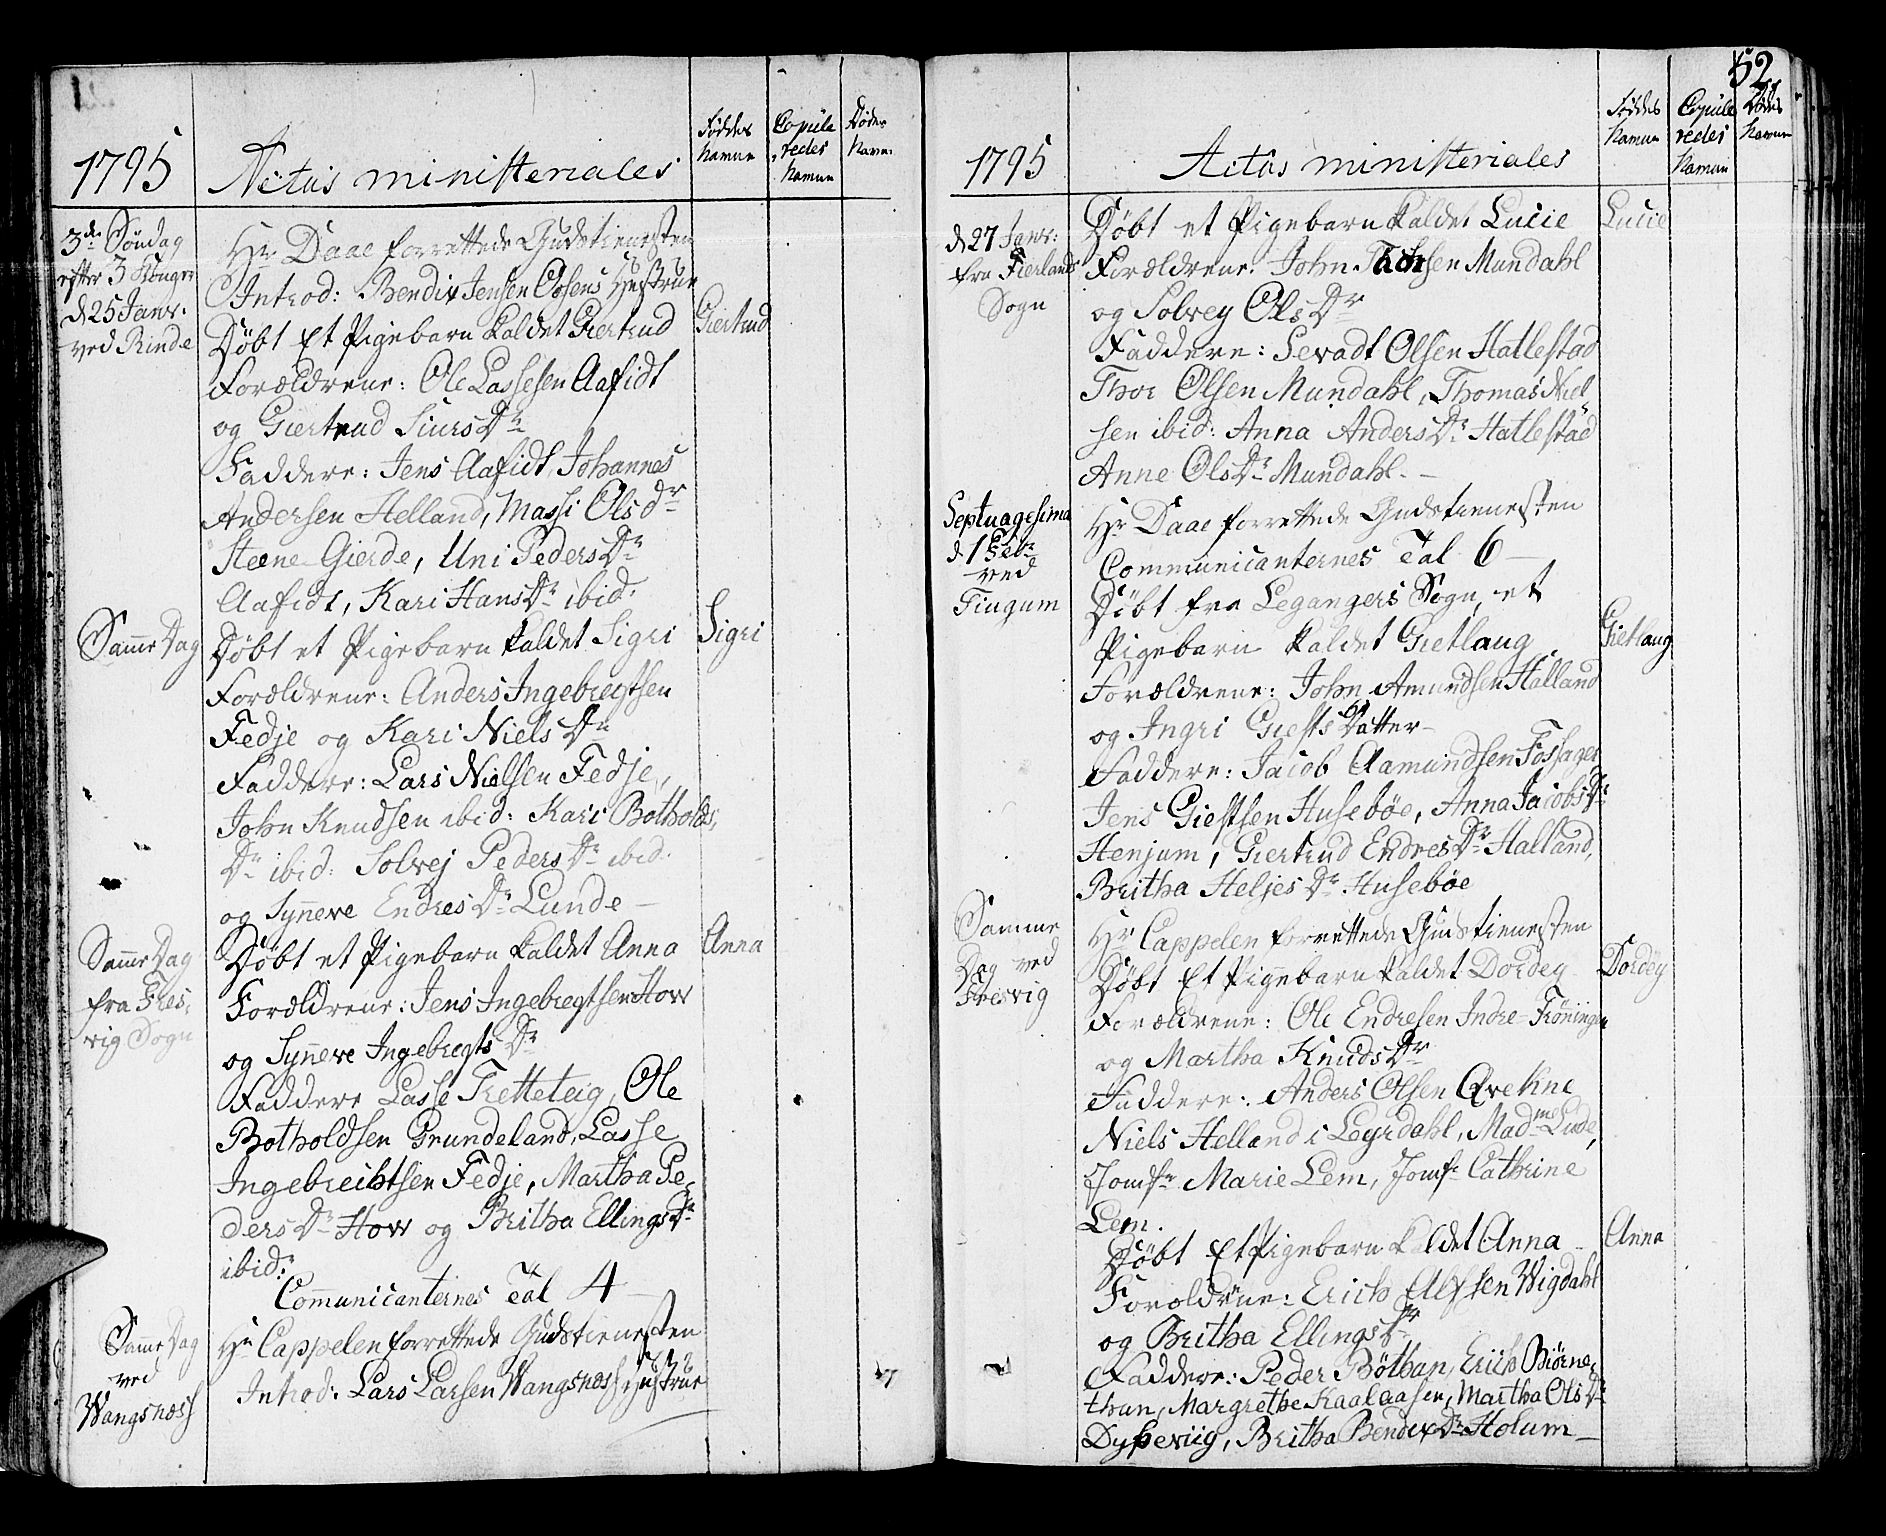 1795
Actus ministeriales
Føddes Namne
Copule redes Namne
Dødes Namne
3de Søndag
efter 3 Konger
d 25 Janr.
ved Rinde
Hr Daae forrettede Gudstienesten
Introd: Bendix Jensen Oosens Hustrue
Døbt Et Pigebarn kaldet Giertrud
Giertrud
Forældrene: Ole Lassesen Aafidt
og Giertrud Siurs Dr
Faddere: Jens Aafidt, Johannes
Andersen Helland, Massi Ols dr
Steene Gierde, Uni Peders Dr
Aafidt, Kari Hans Dr ibid.
Samme Dag
Døbt et Pigebarn kaldet Sigri
Sigri
Forældrene: Anders Ingebregtsen
Fedje og Kari Niels Dr
Faddere: Lars Nielsen Fedje,
John Knudsen ibid: Kari Botholds
Dr ibid: Solvej Peders Dr ibid.
og Synneve Endres Dr Lunde –
Samme Dag
fra Fres-
vig Sogn
Døbt et Pigebarn kaldet Anna
Anna
Forældrene: Jens Ingebregtsen How
og Synneve Ingebregts Dr
Faddere Lasse Tretteteig, Ole
Botholdsen Grundeland, Lasse
Ingebreihtsen Fedje, Martha Pe-
ders Dr How og Britha Ellings Dr
ibid:
Communicanternes Tal 4
Samme Dag
ved
Wangsnæss
Hr Cappelen forrettede Gudstienesten
Introd: Lars Larsen Wangsnæss Hustrue
52
1795
Actus ministeriales
Føddes Namne
Copule redes Namne
Dødes Namne
d 27 Janr:
fra Fierlands
Sogn
Døbt et Pigebarn kaldet Lucie
Lucie
Forældrene: John Mundahl
og Solvey Ols Dr
Faddere: Sevadt Olsen Hatlestad
Thor Olsen Mundahl, Thomas Niel-
sen ibid: Anna Anders Dr Hatlestad
Anne Ols Dr Mundahl. –
Septuagesima
d 1 Febr
ved
Tiugum
Hr Daae forrettede Gudstienesten
Communicanternes Tal 6 –
Døbt fra Legangers Sogn et
Pigebarn kaldet Gietlaug
Gietlaug
Forældrene: John Amundsen Halland
og Ingri Giests Datter –
Faddere: Jacob Aamundsen Foshager
Jens Giestsen Husebøe, Anna Jacobs Dr
Henjum, Giertrud Endres Dr Halland,
Britha Heljes Dr Husebøe
Samme
Dag ved
Fresvig
Hr Cappelen forrettede Gudstienesten
Døbt Et Pigebarn kaldet Dordey
Dordey
Forældrene: Ole Endresen Indre-Frøningen
og Martha Knuds Dr
Faddere: Anders Olsen Qvekne
Niels Helland i Leyrdahl, Madme Lude,
Jomfr Marie Lem, Jomfr Cathrine
Lem.
Døbt Et Pigebarn kaldet Anna
Anna
Forældrene: Erich Wigdahl
og Britha Ellings Dr
Faddere: Peder Bøthun, Erich Biørne-
thun, Margrethe Kaalaasen, Martha Ols Dr
Dysseviig, Britha Bendix Dr Holum –